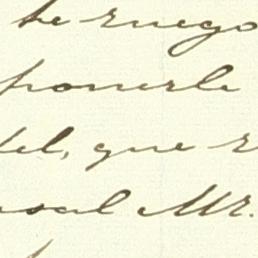 te ruego
ponerle
tel, que r
usal Mr.